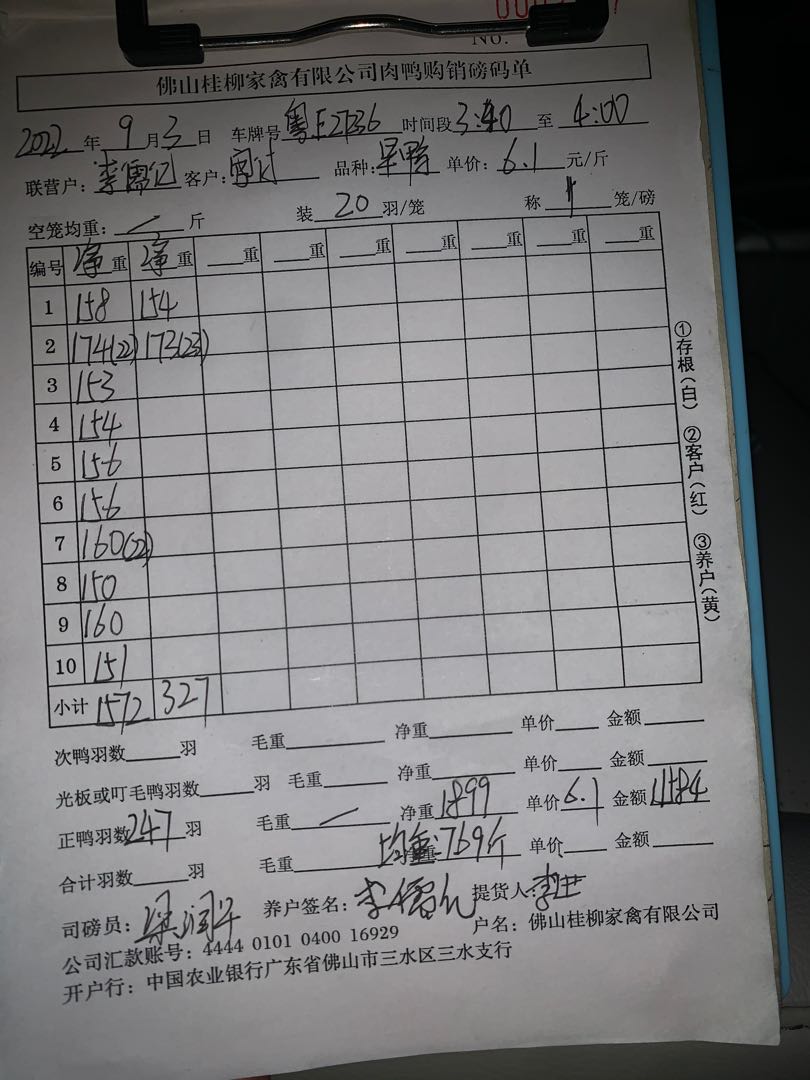 No.
佛山桂柳家禽有限公司肉鸭购销磅码单
2022年9月3日 车牌号 粤E 时间段3:40至4:00
联营户: 李 客户: 品种: 旱鸭 单价: 6.1元/斤
空笼均重: / 斤 装20羽/笼 称1笼/磅
编号 净重 净重 重 重 重 重 重 重 重
1 158 154
2 174(22) 173(23)
3 153
4 154
5 156
6 156
7 160(22)
8 150
9 160
10 151
小计 1572 327
①存根(白) ②客户(红) ③养户(黄)
次鸭羽数 羽 毛重 净重 单价 金额
光板或叮毛鸭羽数 羽 毛重 净重 单价 金额
正鸭羽数247羽 毛重 / 净重1899 单价6.1 金额11584
合计羽数 羽 毛重 净重 均重:7.69斤 单价 金额
司磅员: 梁润 养户签名: 李 提货人: 李
公司汇款账号: 4444 0101 0400 16929 户名: 佛山桂柳家禽有限公司
开户行: 中国农业银行广东省佛山市三水区三水支行